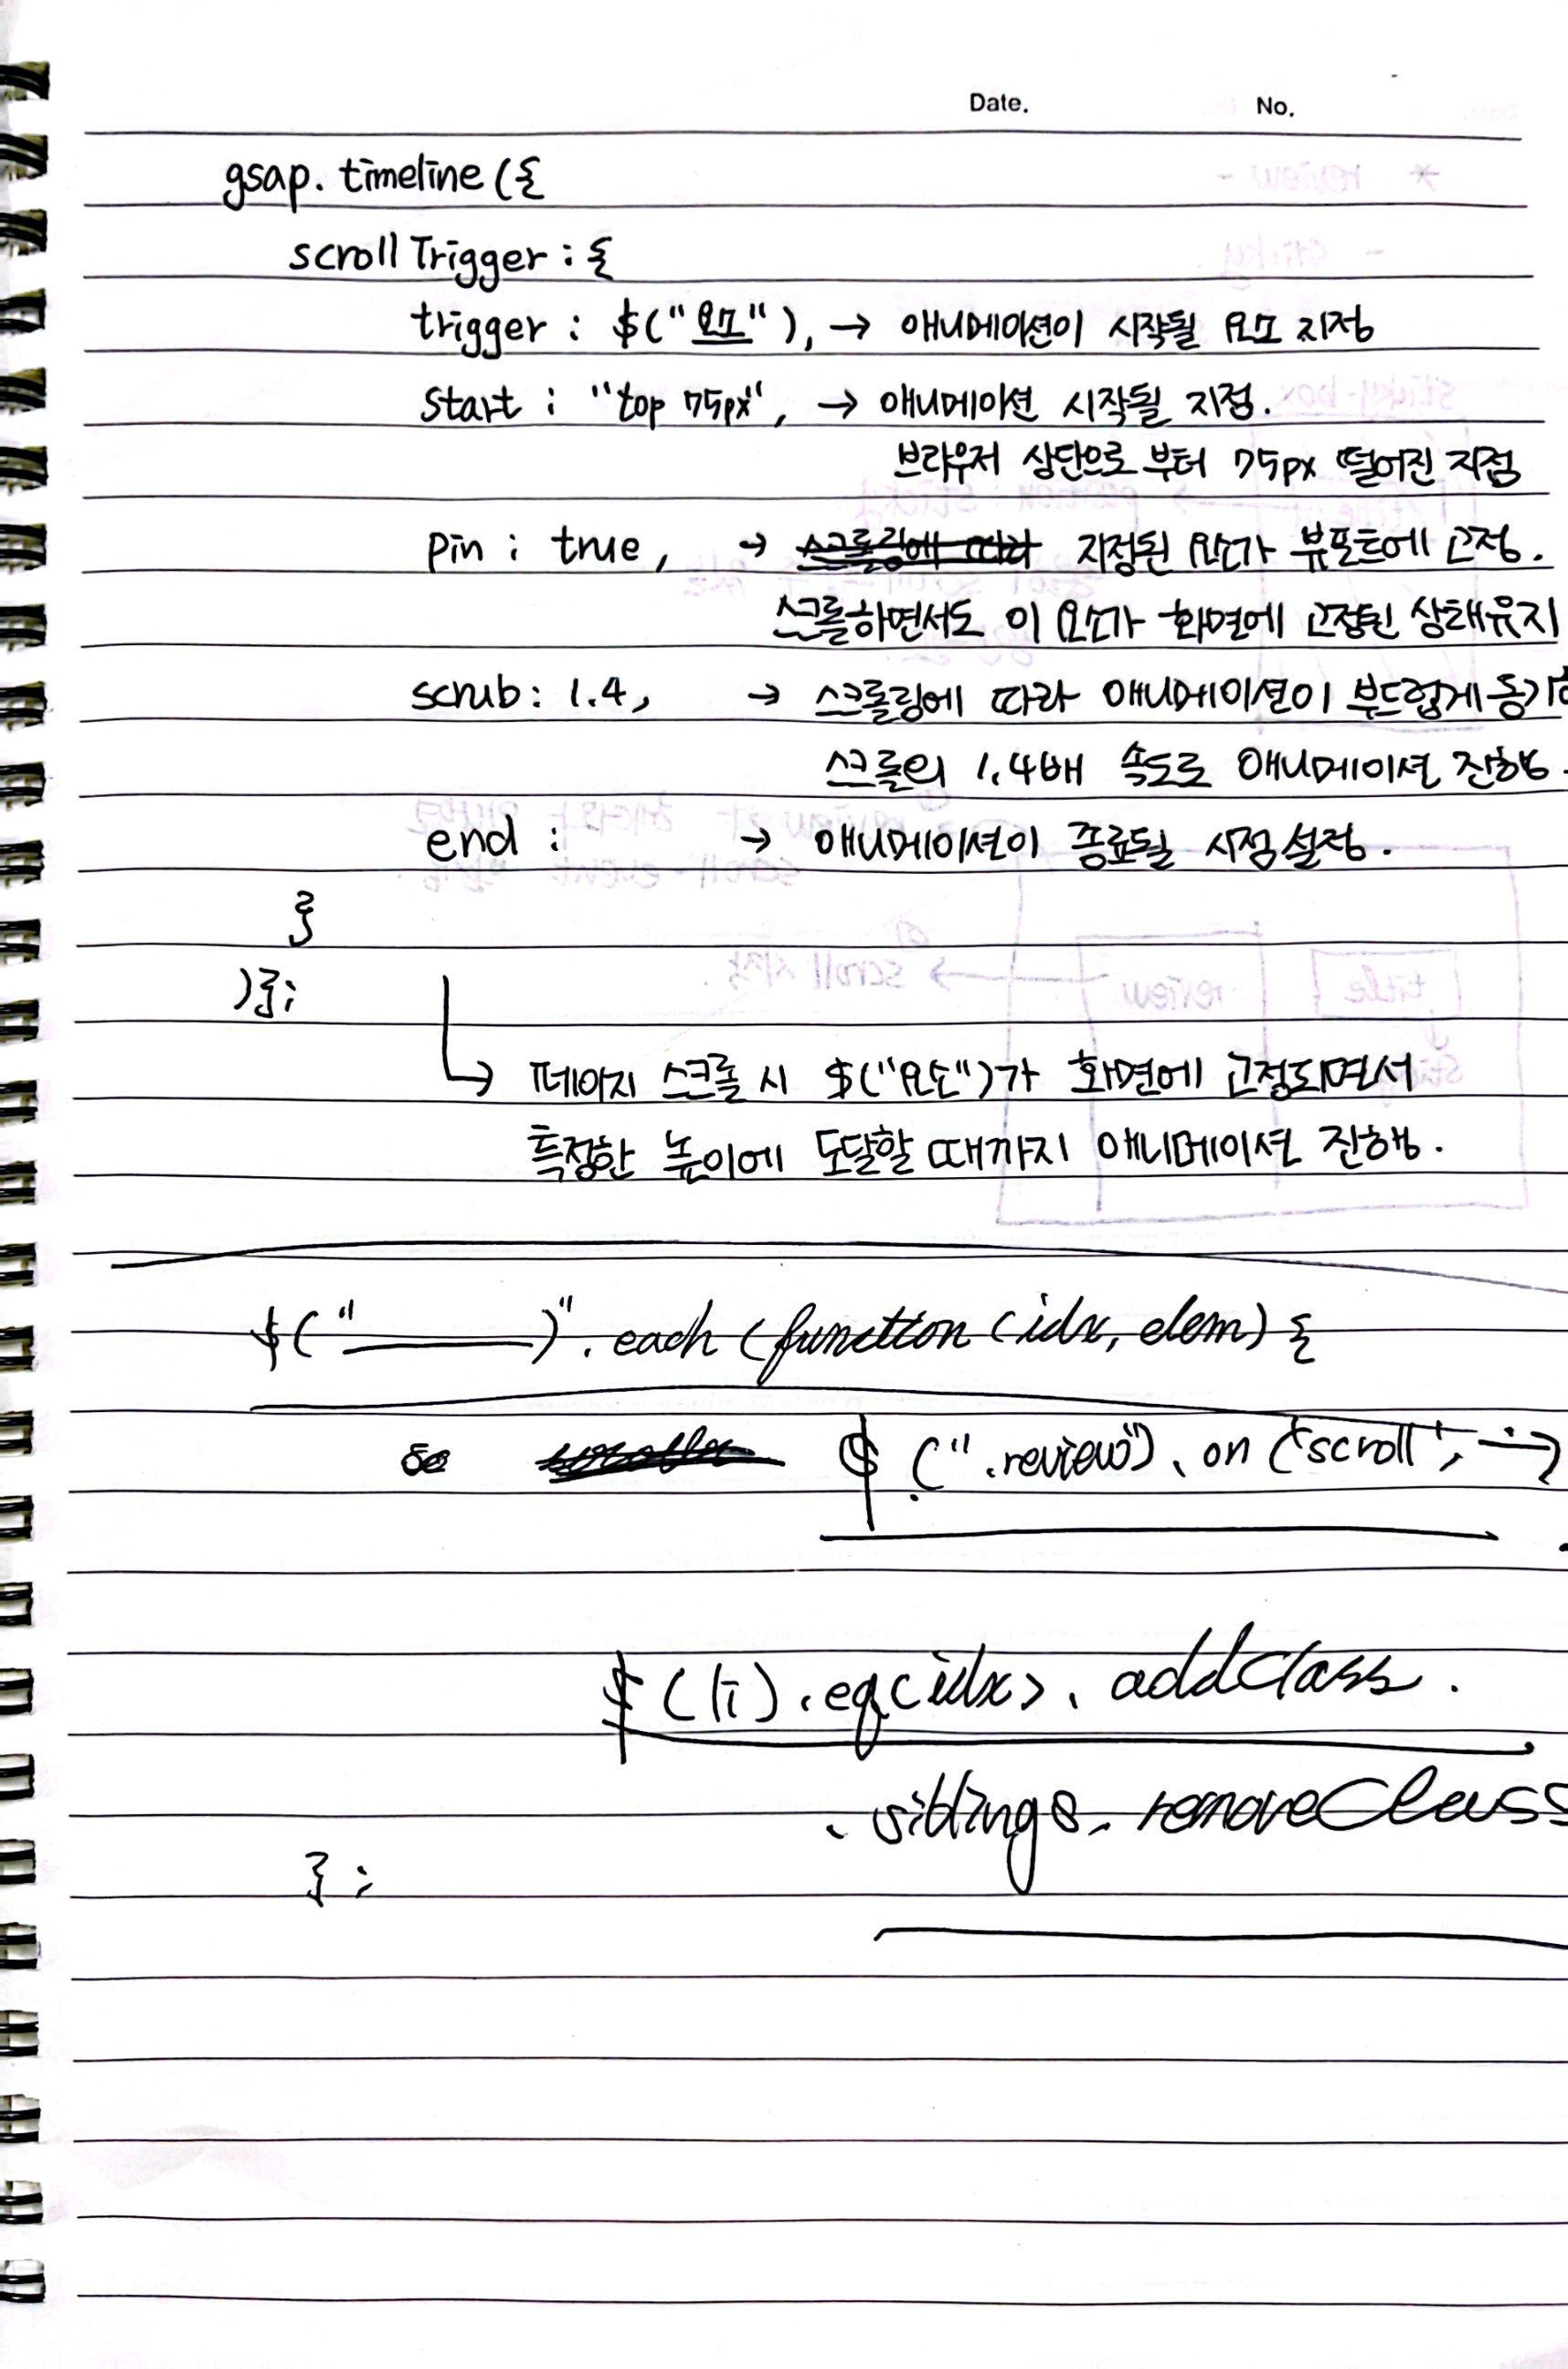 Date. No.
gsap. timeline ({
scrollTrigger : {
trigger : $("요소"), → 애니메이션이 시작될 요소 지정
start : "top 75px", → 애니메이션 시작될 지점.
브라우저 상단으로 부터 75px 떨어진 지점
pin : true, → 스크롤링에 따라 지정된 요소가 뷰포트에 고정.
스크롤하면서도 이 요소가 화면에 고정된 상태유지
scrub : 1.4, → 스크롤링에 따라 애니메이션이 부드럽게 동기
스크롤의 1.4배 속도로 애니메이션 진행.
end : → 애니메이션이 종료될 시점 설정.
}
)};
↳ 페이지 스크롤 시 $("요소")가 화면에 고정되면서
특정한 높이에 도달할 때까지 애니메이션 진행.
$("      )". each (function (idx, elem) {
$(".review"). on ("scroll",
$(li).eq(idx). addClass.
. siblings. removeClass
};